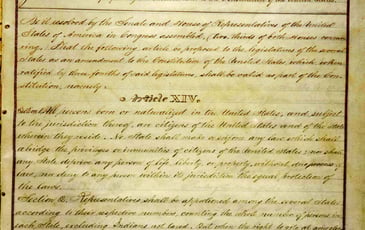 Be it resolved by the Senate and House of Representatives of the United
States of America in Congress assembled, two thirds of both Houses concur-
ring, That the following article be proposed to the legislatures of the several
States as an amendment to the Constitution of the United States, which, when
ratified by three fourths of said legislatures, shall be valid as part of the Con-
stitution, namely:
Article XIV.
Section 1. All persons born or naturalized in the United States, and subject
to the jurisdiction thereof, are citizens of the United States and of the State
wherein they reside. No State shall make or enforce any law which shall
abridge the privileges or immunities of citizens of the United States; nor shall
any State deprive any person of life, liberty, or property, without due process of
law, nor deny to any person within its jurisdiction the equal protection of
the laws.
Section 2. Representatives shall be apportioned among the several States
according to their respective numbers, counting the whole number of persons in
each State, excluding Indians not taxed. But when the right to vote at any election